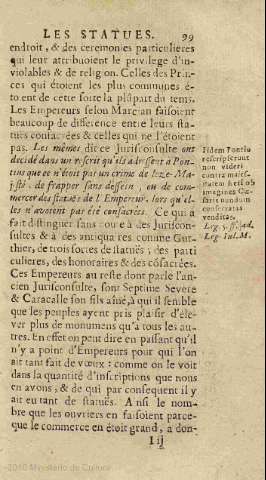 LES STATUES. 99
endroit, & des ceremonies particulieres
qui leur attribuoient le privilege d'in-
violables & de religion. Celles des Prin-
ces qui étoient les plus communes é-
toient de cette sorte la plûpart du tems.
Les Empereurs selon Marcian faisoient
beaucoup de difference entre leurs sta-
tuës consacrées & celles qui ne l'étoient
pas. Les mêmes dit ce Jurisconsulte ont
decidé dans un rescrit qu'ils adressent à Pon-
tius que ce n'étoit pas un crime de leze-Ma-
jesté, de frapper sans dessein, ou de com-
mercer des statuës de l'Empereur, lors qu'el-
les n'avoient pas été consacrées. Ce qui a
fait distinguer sans doute à des Juriscon-
sultes & à des antiquaires comme Gut-
thier, de trois sortes de statuës; des parti
culieres, des honoraires & des cõsacrées.
Ces Empereurs au reste dont parle l'an-
cien Jurisconsulte, sont Septime Severe
& Caracalle son fils aîné, à qui il semble
que les peuples ayent pris plaisir d'éle-
ver plus de monumens qu'à tous les au-
tres. En effet on peut dire en passant qu'il
n'y a point d'Empereurs pour qui l'on
ait tant fait de vœux: comme on le voit
dans la quantité d'inscriptions que nous
en avons; & de qui par consequent il y
ait eu tant de statuës. Ainsi le nom-
bre que les ouvriers en faisoient parce-
que le commerce en étoit grand, a don-
I ij
Iidem Pontio
rescripserunt
non videri
contra maies-
tatem fieri ob
imagines Cæ-
saris nondum
consecratas
venditas.
Leg. 5. ff. ad.
Leg. Jul. M.
2010 Ministerio de Cultura